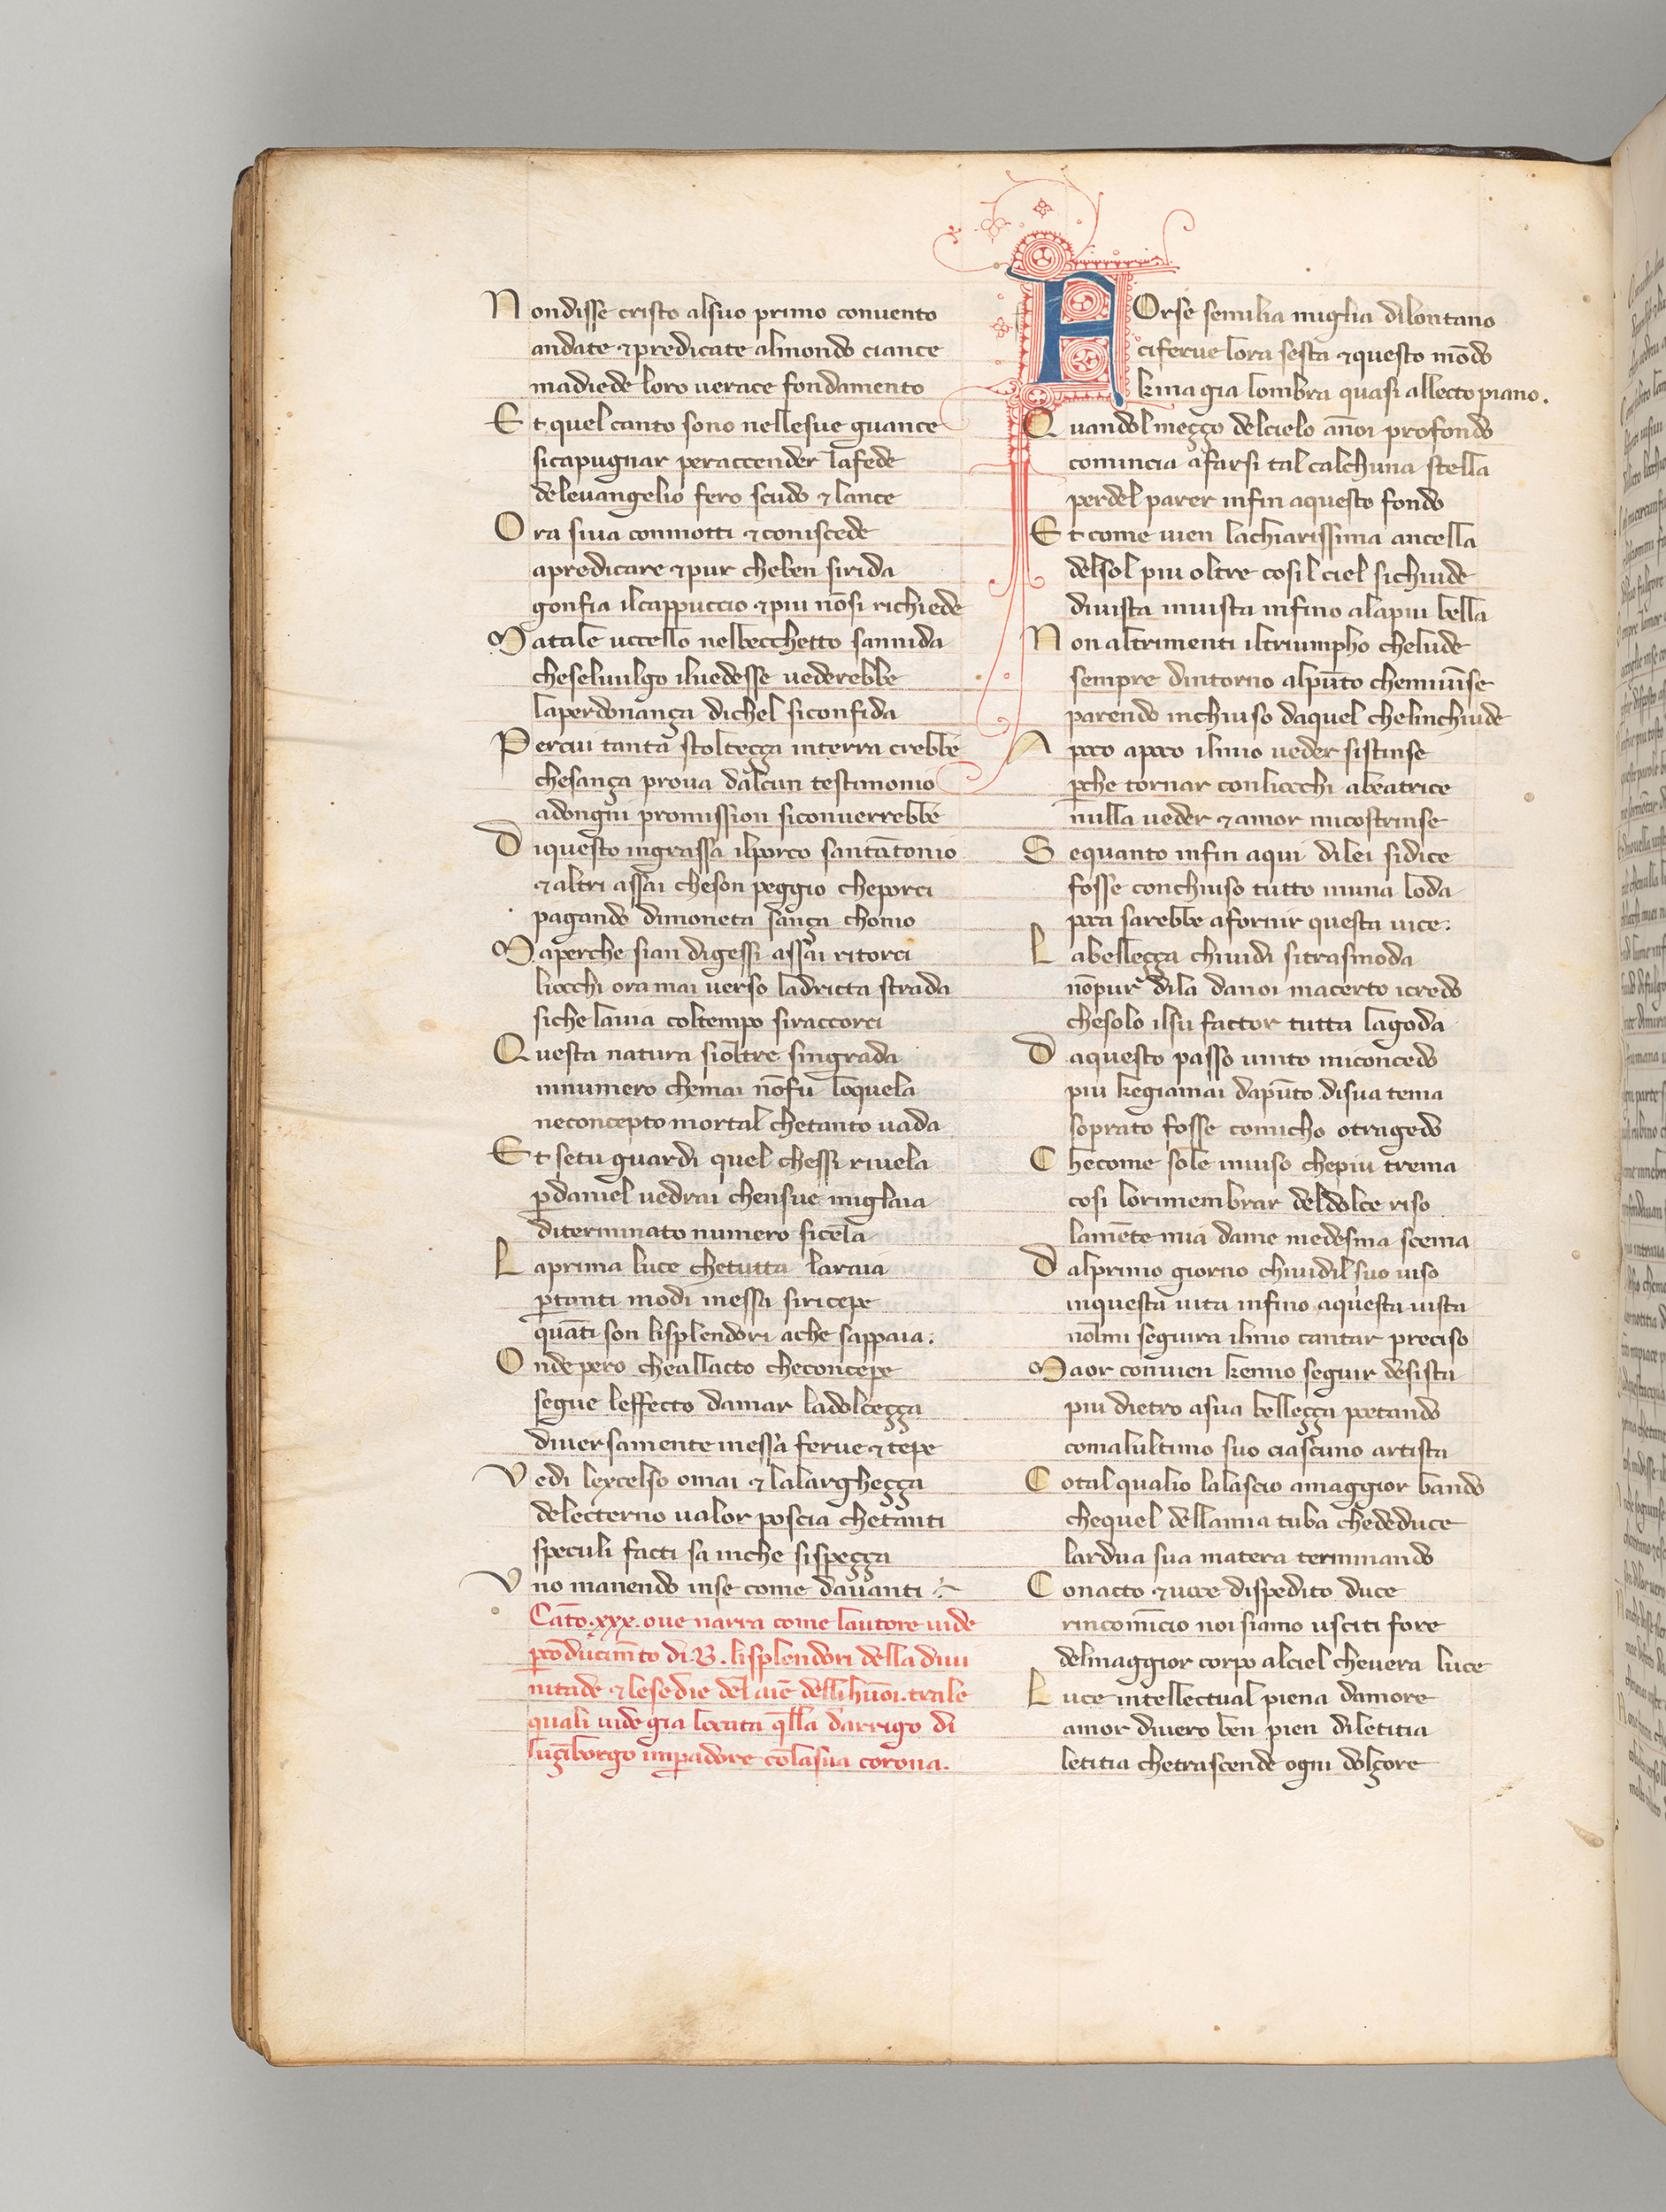 Non disse cristo alsuo primo conuento
andate ⁊ predicate almondo ciance
madiede loro uerace fondamento
Et quel canto sono nellesue guance
sicapugnar peraccender lafede
deleuangelio fero scudo ⁊ lance
Ora siua conmotti ⁊ coniscede
apredicare ⁊ pur cheben sirida
gonfia ilcappuccio ⁊ piu nōsi richiede
Ma tale uccello nelbecchetto sannida
cheseluulgo iluedesse uederebbe
laperdonança dichel siconfida
Percui tanta stolteçça interra crebbe
chesança proua dalcun testimonio
adongni promission siconuerrebbe
Diquesto ingrassa ilporco santātonio
⁊ altri assai cheson peggio cheporci
pagando dimoneta sança chonio
Ma perche sian digessi assai ritorci
liocchi oramai uerso ladricta strada
siche lauia coltempo siraccorci
Questa natura sioltre singrada
innumero chemai nōfu loquela
neconcepto mortal chetanto uada
Et setu guardi quel chessi riuela
ꝑdaniel uedrai chensue miglaia
diterminato numero sicela
Laprima luce chetutta laraia
ꝑtanti modi inessa siricepe
quāti son lisplendori ache sappaia.
Onde pero cheallacto checoncepe
segue leffecto damar ladolceçça
diuersamente inessa ferue ⁊ tepe
Vedi lexcelso omai ⁊ lalargheçça
delecterno ualor poscia chetanti
speculi facti sa inche sispeçça
Vno manendo inse come dauanti
Cāto .xxx. oue narra come lautore uide
ꝑcōducimēto di .B. lisplendori della diui
nitade ⁊ lesedie del aīe delli huoī. trale
quali uide gia locata q̄lla darrigo di
luçīborgo imꝑadore cōlasua corona.
FOrse semilia miglia dilontano
ciferue lora sesta ⁊ questo mōdo
kina gia lombra quasi allecto piano.
Quandol meçço delcielo annoi profondo
comincia afarsi tal calchuna stella
perdel parer infin aquesto fondo
Et come uien lachiarissima ancella
delsol piu oltre cosil ciel sichiude
diuista inuista infino alapiu bella
Non altrimenti iltriumpho chelude
sempre dintorno alpūto chemiuīse
parendo inchiuso daquel chelinchiude
Apoco apoco ilmio ueder sistinse
ꝑche tornar conliocchi abeatrice
nulla ueder ⁊ amor micostrinse
Sequanto infin aqui dilei sidice
fosse conchiuso tutto inuna loda
poca sarebbe afornir questa uice.
Labelleçça chiuidi sitrasmoda
nōpur dila danoi macerto icredo
chesolo ilsu factor tutta lagoda
Daquesto passo uinto miconcedo
piu kegiamai dapūto disua tema
soprato fosse comicho otragedo
Checome sole inuiso chepiu trema
cosi lorimembrar deldolce riso
lamēte mia dame medesma scema
Dalprimo giorno chiuidil suo uiso
inquesta uita infino aquesta uista
nōlmi seguira ilmio cantar preciso
Ma or conuien kemio seguir desista
piu dietro asua belleçça poetando
comalultimo suo ciascuno artista
Cotal qualio lalascio amaggior bando
chequel dellamia tuba chededuce
lardua sua matera terminando
Conacto ⁊ uoce dispedito duce
rincomīcio noi siamo usciti fore
delmaggior corpo alciel cheuera luce
Luce intellectual piena damore
amor diuero ben pien diletitia
letitia chetrascende ogni dolçore